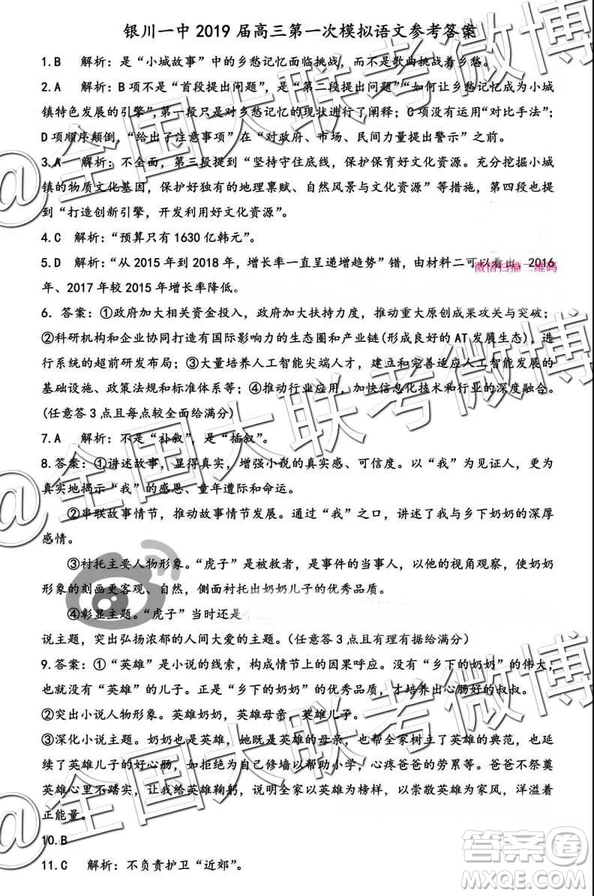 银川一中 2019 届高三第一次模拟语文参考答案
1.B 解析：是“小城故事”中的乡愁记忆面临挑战，而不是歌曲挑战着乡愁。
2.A 解析：B项不是“首段提出问题”，是“第二段提出问题”“如何让乡愁记忆成为小城
镇特色发展的引擎”，第一段只是对乡愁记忆的形成进行了阐释；C项没有“对比手法”；
D项顺序颠倒，“给出了注意事项”在“对政府、市场、民间力量提出警示”之前。
3.A 解析：不全面，第三段提到“坚持守住底线，保护保育好文化资源。充分挖掘小城
镇的文化基因，保护好独有的地理禀赋、自然风景与文化资源”等措施，第四段也提
到“打造创新引擎，开发利用好文化资源”。
4.C 解析：“预算只有 1630 亿韩元”。
5.D 解析：“从 2015 年到 2018 年，增长率一直呈递增趋势”错，由材料二可以看出，2016
年、2017 年较 2015 年增长率降低。
微信扫描二维码
6．答案：①政府加大相关资金投入，政府加大扶持力度，推动重大原创成果攻关与突破；
②科研机构和企业协同打造有国际影响力的生态圈和产业链(形成良好的 AT 发展生态)，进
行系统的超前研发布局；③大量培养人工智能尖端人才，建立和完善适应人工智能发展的
基础设施、政策法规和标准体系等；④推动行业应用，加快信息化技术和行业的深度融合。
(任意答 3 点且每点较全面给满分)
7.A 解析：不是“补叙”，是“插叙”。
8．答案：①讲述故事，显得真实，增强小说的真实感、可信度。以“我”为见证人，更为
真实地描绘“我”的感恩、童年遗憾和成长。
②串联故事情节，推动故事情节发展。通过“我”之口，讲述了我与乡下奶奶的深厚
感情。
③衬托主要人物形象。“虎子”是被救者，是事件的当事人，以他的视角观察，使奶
奶的刻画更加具体、深刻。侧面衬托出奶奶儿子的优秀品质。
④彰显主题。“虎子”当时还是
说主题，突出弘扬浓郁的人间大爱的主题。(任意答 3 点且有理有据给满分)
9．答案：①“英雄”是小说的线索，构成情节上的因果呼应。没有“乡下的奶奶”的伟大，
也就没有“英雄”的儿子。没有“乡下的奶奶”的优秀品质，也就没有善良好心肠的叔叔。
②突出小说人物形象。英雄奶奶，英雄母亲，英雄儿子。
③深化小说主题。奶奶也是英雄的母亲，失去儿子后没有向政府提过任何要求，奶奶继承
了英雄儿子的好心肠，如自己出资修墙以帮助学生，给学生开门，心疼爸爸的劳累等。奶
奶和英雄儿子都是英雄，平凡而又伟大。这样的英雄洋溢着人间大爱，传递着英雄善良的
正能量。
10.B
11.C 解析：不负责护卫“近郊”。
@全国大联考微博
答案圈